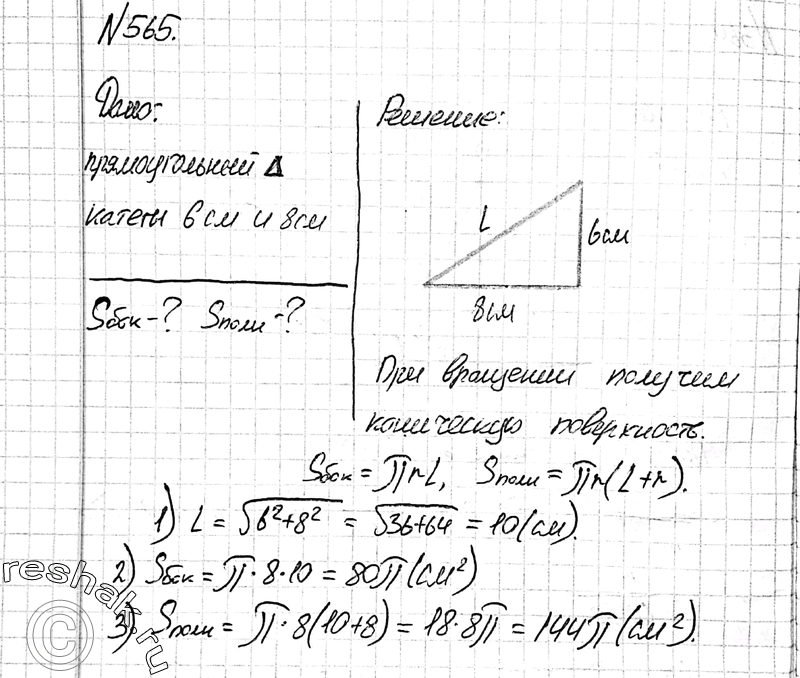 №565.
Дано:
прямоугольный Δ
катеты 6см и 8см
Sбок-? Sполн-?
Решение:
L
6см
8см
При вращении получим
коническую поверхность.
Sбок = πrL, Sполн = πr(L+r).
1) L = √6²+8² = √36+64 = 10(см).
2) Sбок = π·8·10 = 80π(см²)
3) Sполн = π·8(10+8) = 18·8π = 144π(см²).
reshak.ru
©